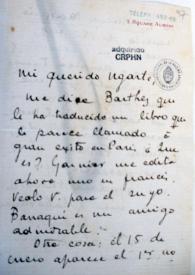 TÉLÉPH
5 SQUARE
adquirido
CRPHN
Mi querido Ugarte,
Me dice Barthez que
le ha traducido un libro que
le parece llamado á
gran éxito en París. ¿ Qué
es? Garnier me edita
ahora uno en francés
V. para el suyo.
es un amigo
admirable.
Otra cosa: el 15 de
enero aparece el 1er no